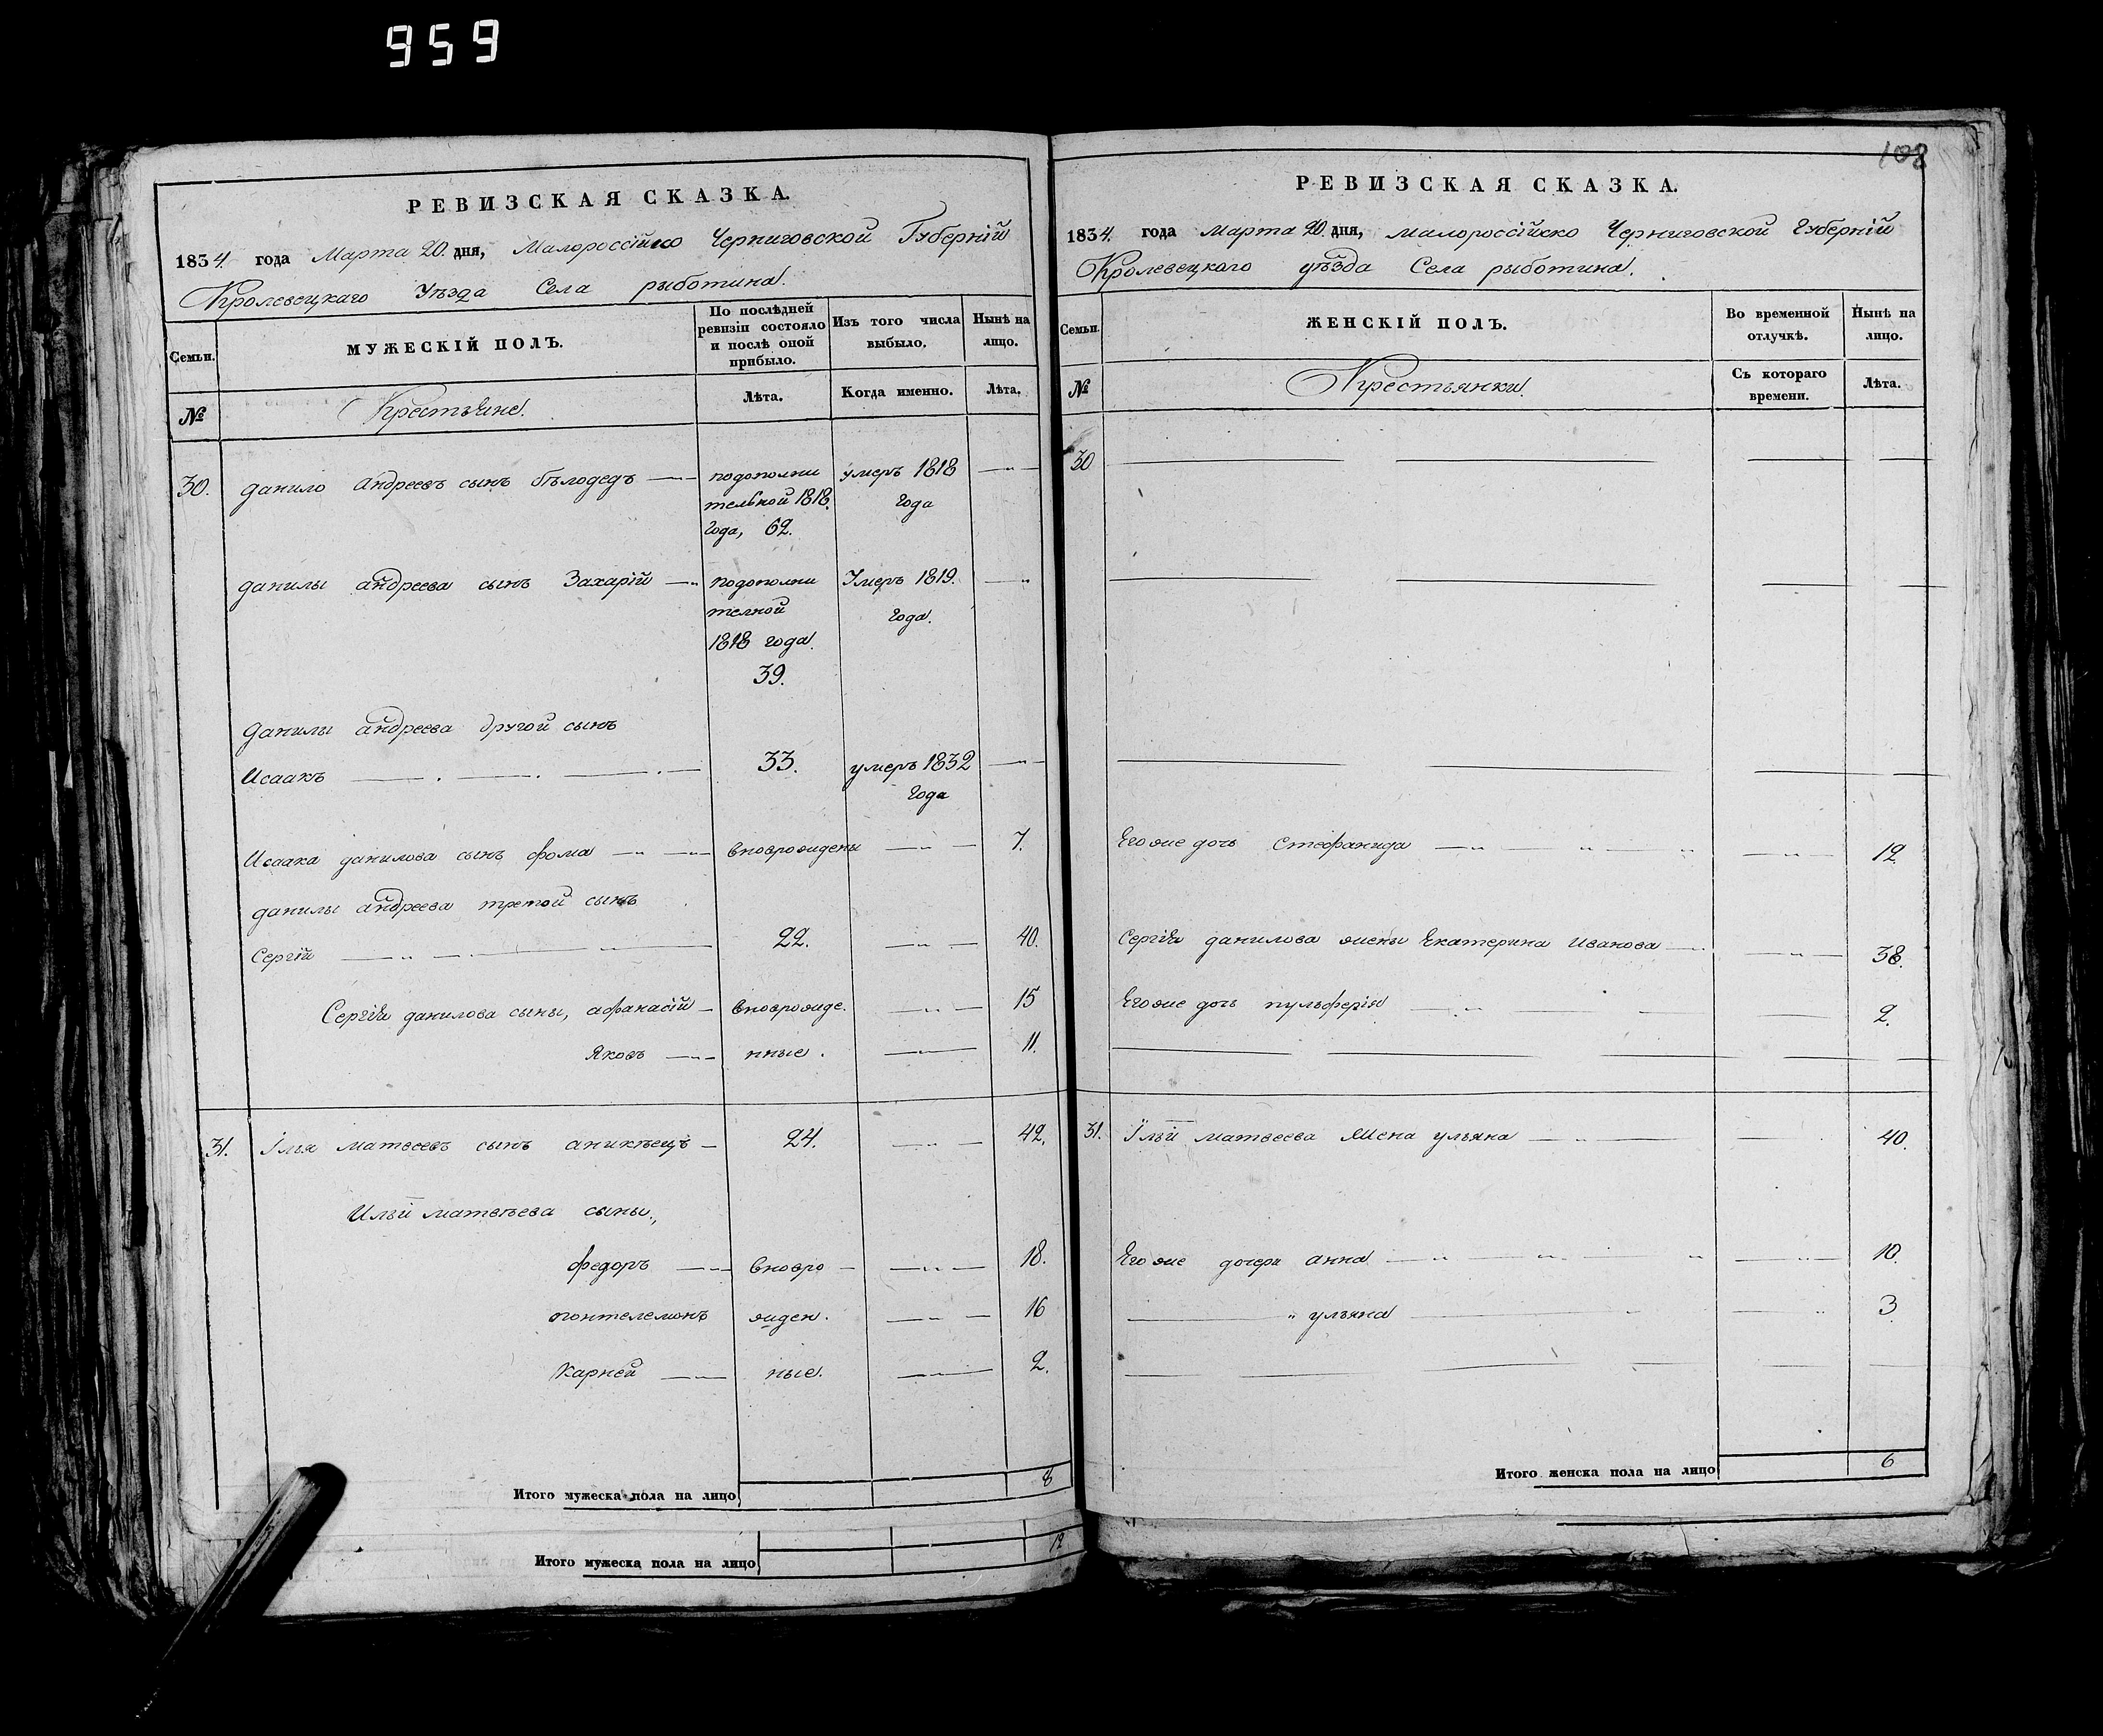 959
108
РЕВИЗСКАЯ СКАЗКА.
1834. года Марта 20. дня, Малороссійско Черниговской Губерній
Кролевецкаго Уѣзда Села рыботина.
Семьи.
МУЖЕСКІЙ ПОЛЪ.
По послѣдней ревизіи состояло и послѣ оной прибыло.
Изъ того числа выбыло.
Нынѣ на лицо.
№
Крестьяне.
Лѣта.
Когда именно.
Лѣта.
30. данило андреевъ сынъ бѣлодедъ — подополни умеръ 1818 —"—
тельной 1818. года
года, 62.
данилы андреева сынъ Захарій — подополни Умеръ 1819. —"
телной года.
1818 года.
39.
данилы андреева другой сынъ
Исаакъ — . — . — . — 33. умеръ 1832 —"—
года
Исаака данилова сынъ фома —"— —"— вноврождены —"— 7.
данилы андреева третой сынъ
Сергій —"— 22. —"— 40.
Сергія данилова сыны, афанасій — вноврожде. —"— 15
Яковъ —"— нные. —"— 11.
31. Ілья матвеевъ сынъ аникѣецъ — 24. —"— 42.
Ильи матвѣева сыны.,
федоръ —"— вновро — —"— 18.
понтелемонъ жден. —"— 16
Карней —"— ные. —"— 2.
Итого мужеска пола на лицо 8
Итого мужеска пола на лицо 12
РЕВИЗСКАЯ СКАЗКА.
1834. года Марта 20. дня, малороссійско Черниговской Губерній
Кролевецкого уѣзда Села рыботина.
Семьи.
ЖЕНСКІЙ ПОЛЪ.
Во временной отлучкѣ.
Нынѣ на лицо.
№
Крестьянки.
Съ котораго времени.
Лѣта.
30
Егоже дочь Стефанида —"— —"— 12.
Сергія данилова жены Екатерина Иванова — —"— 38.
Егоже дочь пульферія —"— — 2.
31. Ільи матвеева жена ульяна —"— — 40.
Егоже дочери анна —"— —"— 10.
" ульяна — —" 3.
Итого женска пола на лицо 6